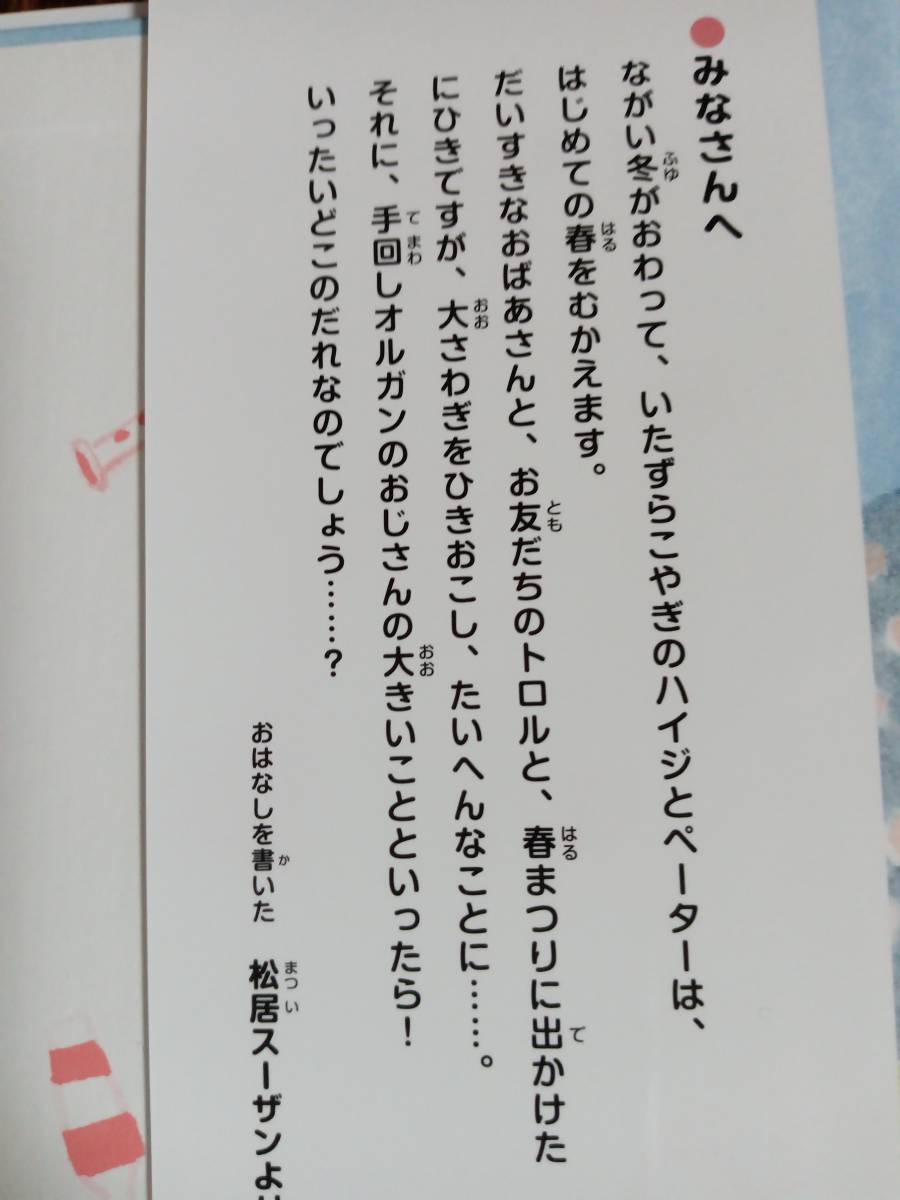 ●みなさんへ
ながい冬がおわって、いたずらこやぎのハイジとペーターは、
はじめての春をむかえます。
だいすきなおばあさんと、お友だちのトロルと、春まつりに出かけた
にひきですが、大さわぎをひきおこし、たいへんなことに……。
それに、手回しオルガンのおじさんの大きいことといったら！
いったいどこのだれなのでしょう……？
おはなしを書いた　松居スーザンより